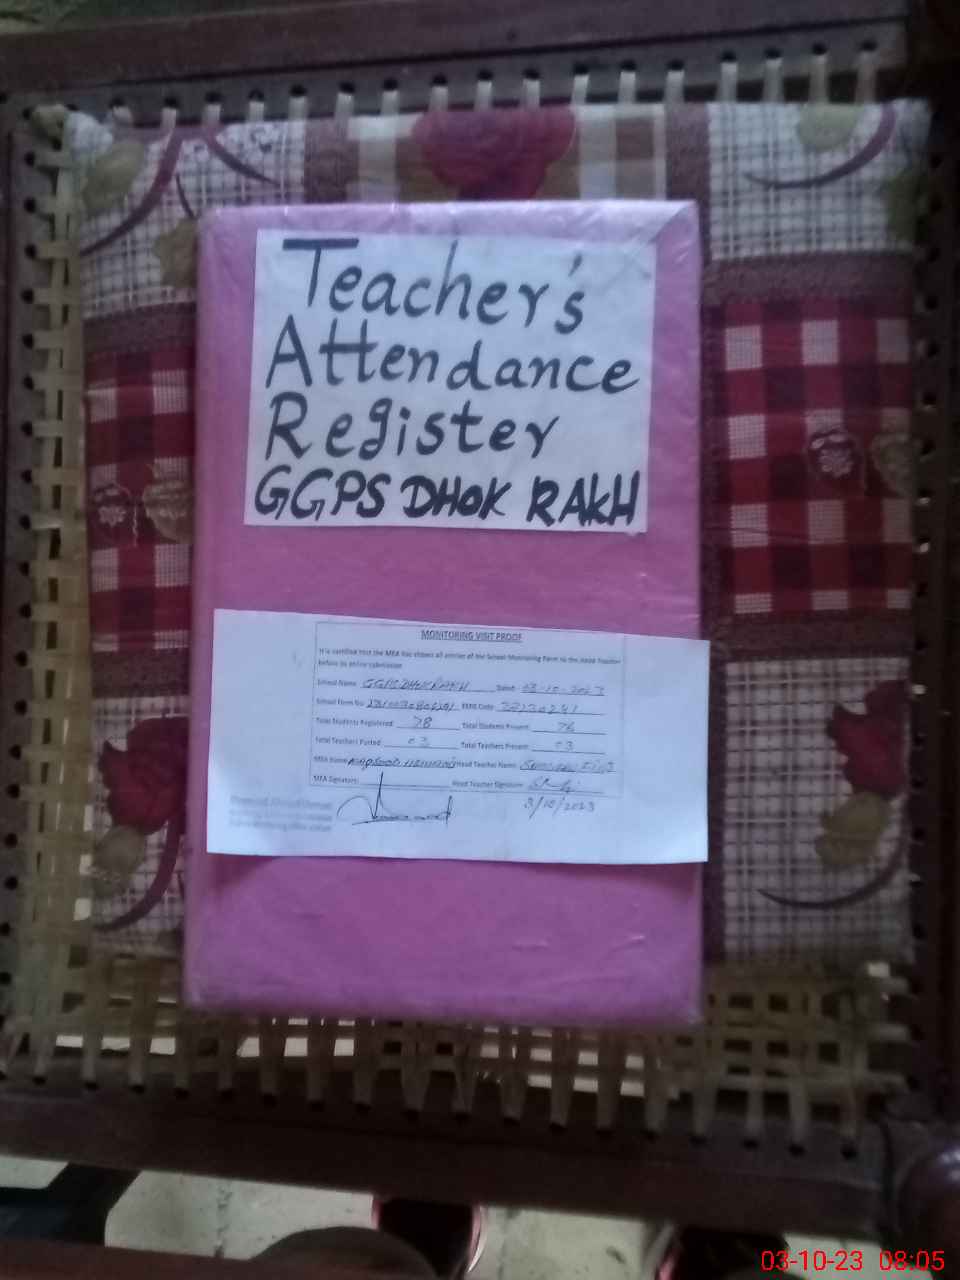 Teacher's
Attendance
Register
GGPS DHOK RAKH
MONITORING VISIT PROOF
It is certified that the MEA has shown all entries of the School Monitoring Form to the Head Teacher
before its online submission
School Name: GGPS DHOK RAKH Dated: 03-10-2023
School Form No: EMIS Code: 37130241
Total Students Registered: 78 Total Students Present: 76
Total Teachers Posted: 03 Total Teachers Present: 03
MEA Name: Maqsood Head Teacher Name:
MEA Signature: Head Teacher Signature:
3/10/2023
03-10-23 08:05